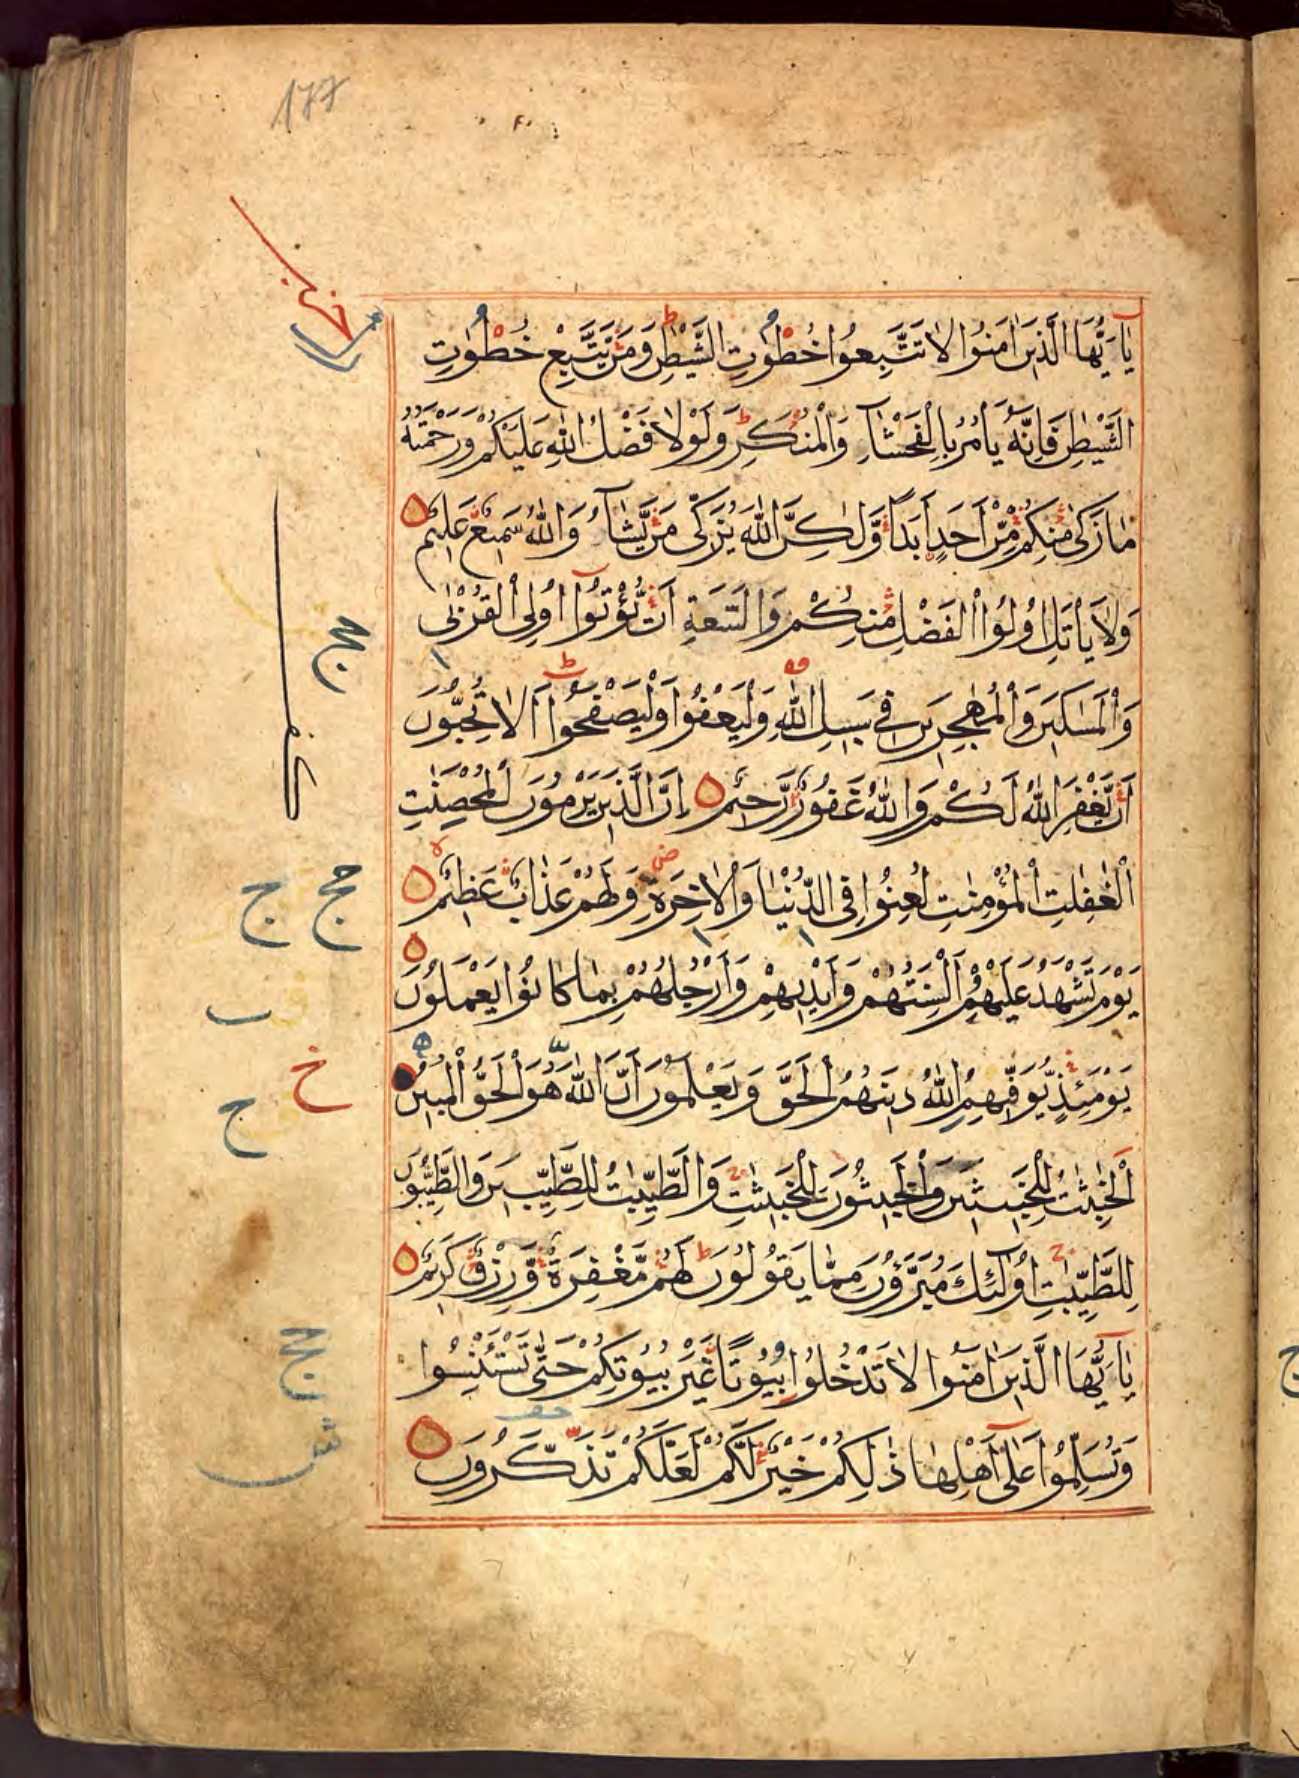 177
يٰٓاَيُّهَا الَّذِينَ اٰمَنُوا لَا تَتَّبِعُوا خُطُوٰتِ الشَّيْطٰنِ وَمَنْ يَتَّبِعْ خُطُوٰتِ
الشَّيْطٰنِ فَاِنَّهُ يَاْمُرُ بِالْفَحْشَآءِ وَالْمُنْكَرِ وَلَوْلَا فَضْلُ اللّٰهِ عَلَيْكُمْ وَرَحْمَتُهُ
مَا زَكٰى مِنْكُمْ مِنْ اَحَدٍ اَبَدًا وَّلٰكِنَّ اللّٰهَ يُزَكِّى مَنْ يَّشَآءُ وَاللّٰهُ سَمِيعٌ عَلِيمٌ
وَلَا يَاْتَلِ اُولُوا الْفَضْلِ مِنْكُمْ وَالسَّعَةِ اَنْ يُّؤْتُوٓا اُولِى الْقُرْبٰى
وَالْمَسٰكِينَ وَالْمُهٰجِرِينَ فِى سَبِيلِ اللّٰهِ وَلْيَعْفُوا وَلْيَصْفَحُوٓا اَلَا تُحِبُّونَ
اَنْ يَّغْفِرَ اللّٰهُ لَكُمْ وَاللّٰهُ غَفُورٌ رَّحِيمٌ اِنَّ الَّذِينَ يَرْمُونَ الْمُحْصَنٰتِ
الْغٰفِلٰتِ الْمُؤْمِنٰتِ لُعِنُوا فِى الدُّنْيَا وَالْاٰخِرَةِ وَلَهُمْ عَذَابٌ عَظِيمٌ
يَوْمَ تَشْهَدُ عَلَيْهِمْ اَلْسِنَتُهُمْ وَاَيْدِيهِمْ وَاَرْجُلُهُمْ بِمَا كَانُوا يَعْمَلُونَ
يَوْمَئِذٍ يُّوَفِّيهِمُ اللّٰهُ دِينَهُمُ الْحَقَّ وَيَعْلَمُونَ اَنَّ اللّٰهَ هُوَ الْحَقُّ الْمُبِينُ
اَلْخَبِيثٰتُ لِلْخَبِيثِينَ وَالْخَبِيثُونَ لِلْخَبِيثٰتِ وَالطَّيِّبٰتُ لِلطَّيِّبِينَ وَالطَّيِّبُونَ
لِلطَّيِّبٰتِ اُولٰٓئِكَ مُبَرَّؤُنَ مِمَّا يَقُولُونَ لَهُمْ مَّغْفِرَةٌ وَّرِزْقٌ كَرِيمٌ
يٰٓاَيُّهَا الَّذِينَ اٰمَنُوا لَا تَدْخُلُوا بُيُوتًا غَيْرَ بُيُوتِكُمْ حَتّٰى تَسْتَئْنِسُوا
وَتُسَلِّمُوا عَلٰٓى اَهْلِهَا ذٰلِكُمْ خَيْرٌ لَّكُمْ لَعَلَّكُمْ تَذَكَّرُونَ